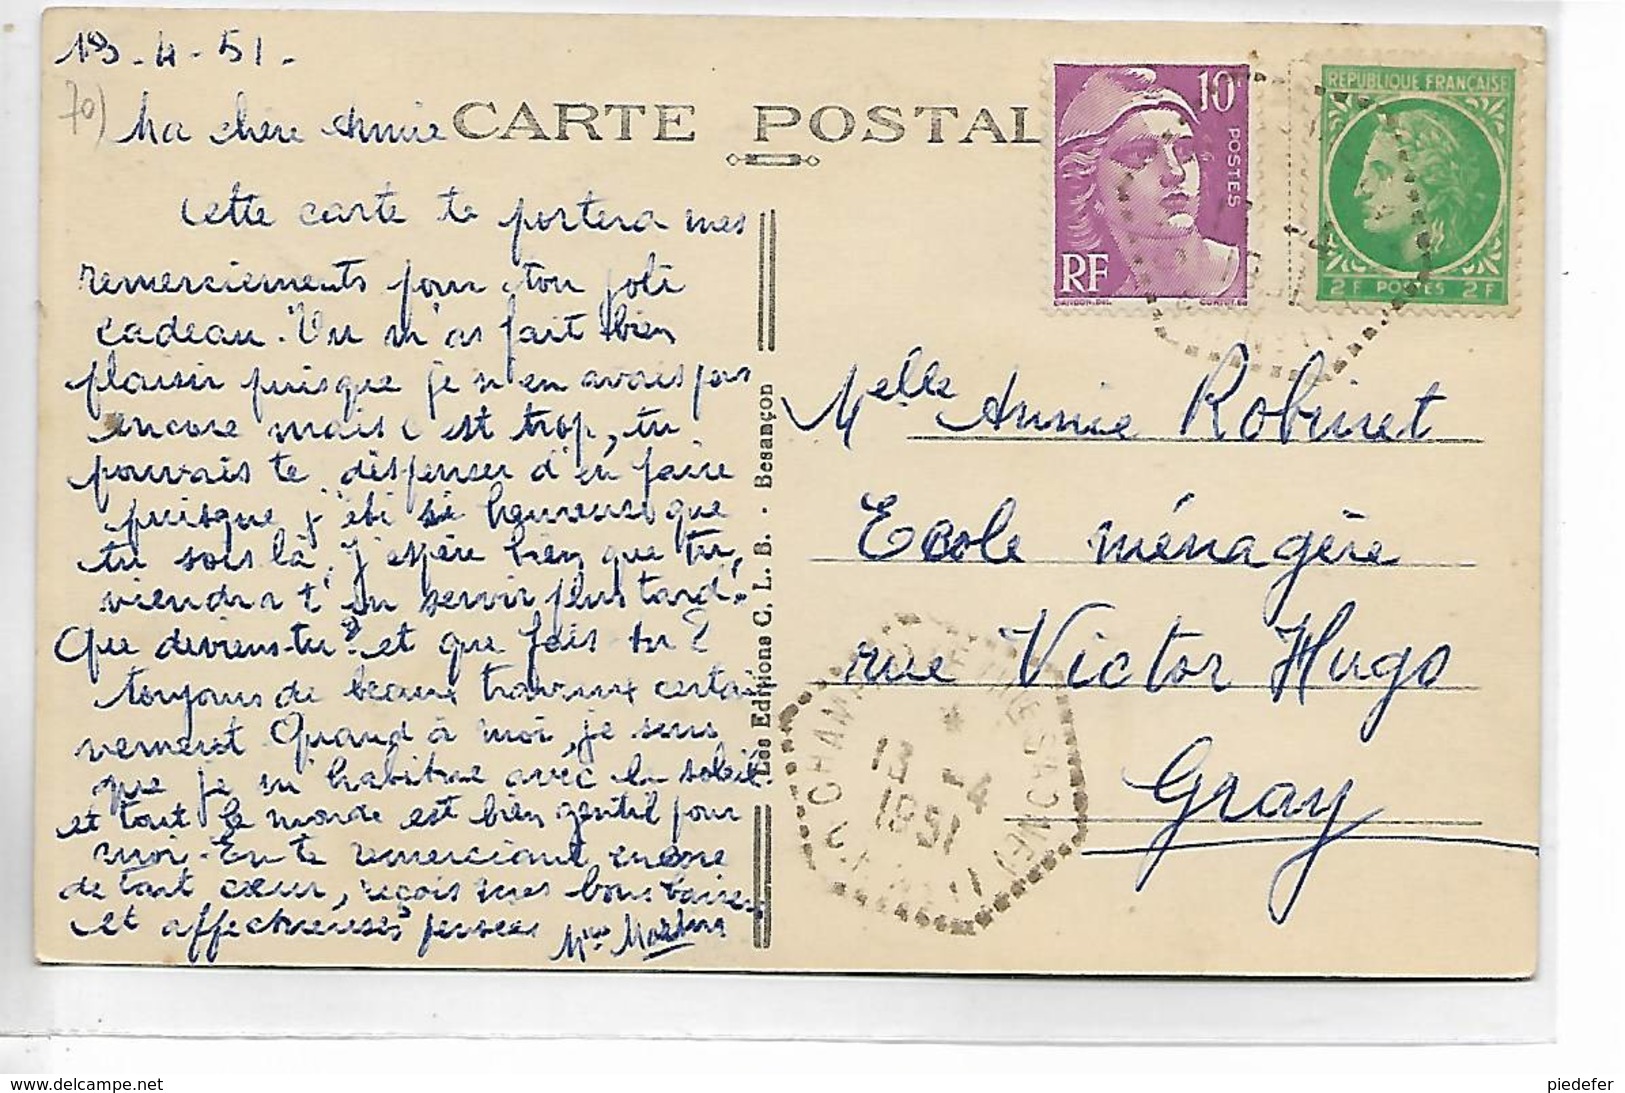 13-4-51-
70)
Ma chère Annie
CARTE POSTAL
Cette carte te portera mes
remerciements pour ton joli
cadeau. Tu m'as fait bien
plaisir puisque je n'en avais pas
encore mais c'est trop, tu
pouvais te dispenser d'en faire
puisque j'étais si heureuse que
tu sois là. J'espère bien que tu
viendra t'en servir plus tard.
Que deviens-tu? et que fais-tu?
toujours de beaux travaux certai
nement. Quand à moi, je sens
que je m'habitue avec le soleil
et tout le monde est bien gentil pour
moi. En te remerciant encore
de tout cœur, reçois mes bons baisers
et affectueuses pensées
Les Editions C. L. B. - Besançon
10F
POSTES
RF
GANDON.DEL
CORTOT.SC
REPUBLIQUE FRANÇAISE
2F POSTES 2F
Melle Annie Robinet
Ecole ménagère
rue Victor Hugo
Gray
13 -4
1951
delcampe.net
piedefer